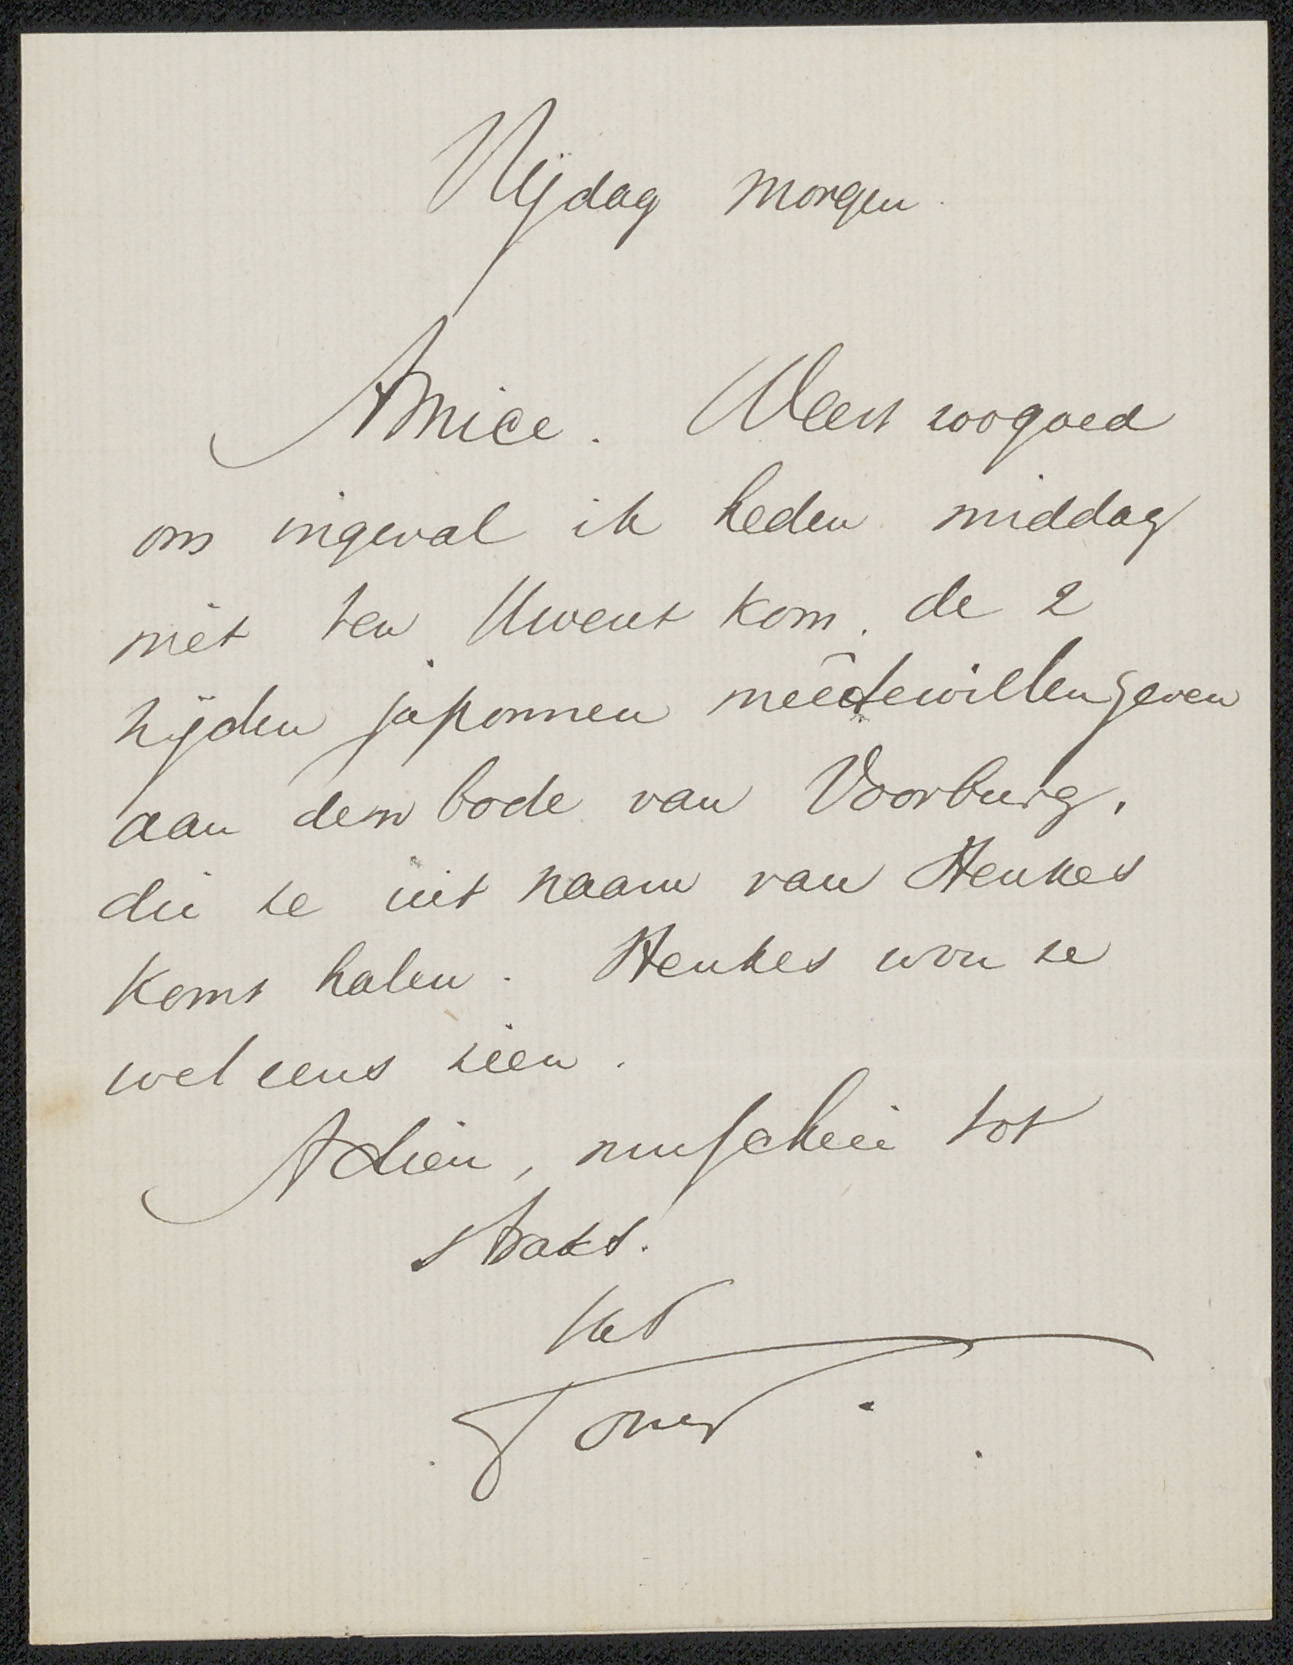 Vrijdag morgen.
Amice. Weest zoogoed
om ingeval ik heden middag
niet ten Uwent kom, de 2
zijden japonnen meêdewillengeven
aan den bode van Voorburg,
die ze uit naam van Henkes
komt halen. Henkes wou ze
wel eens zien.
Adieu, misschien tot
straks.
tat